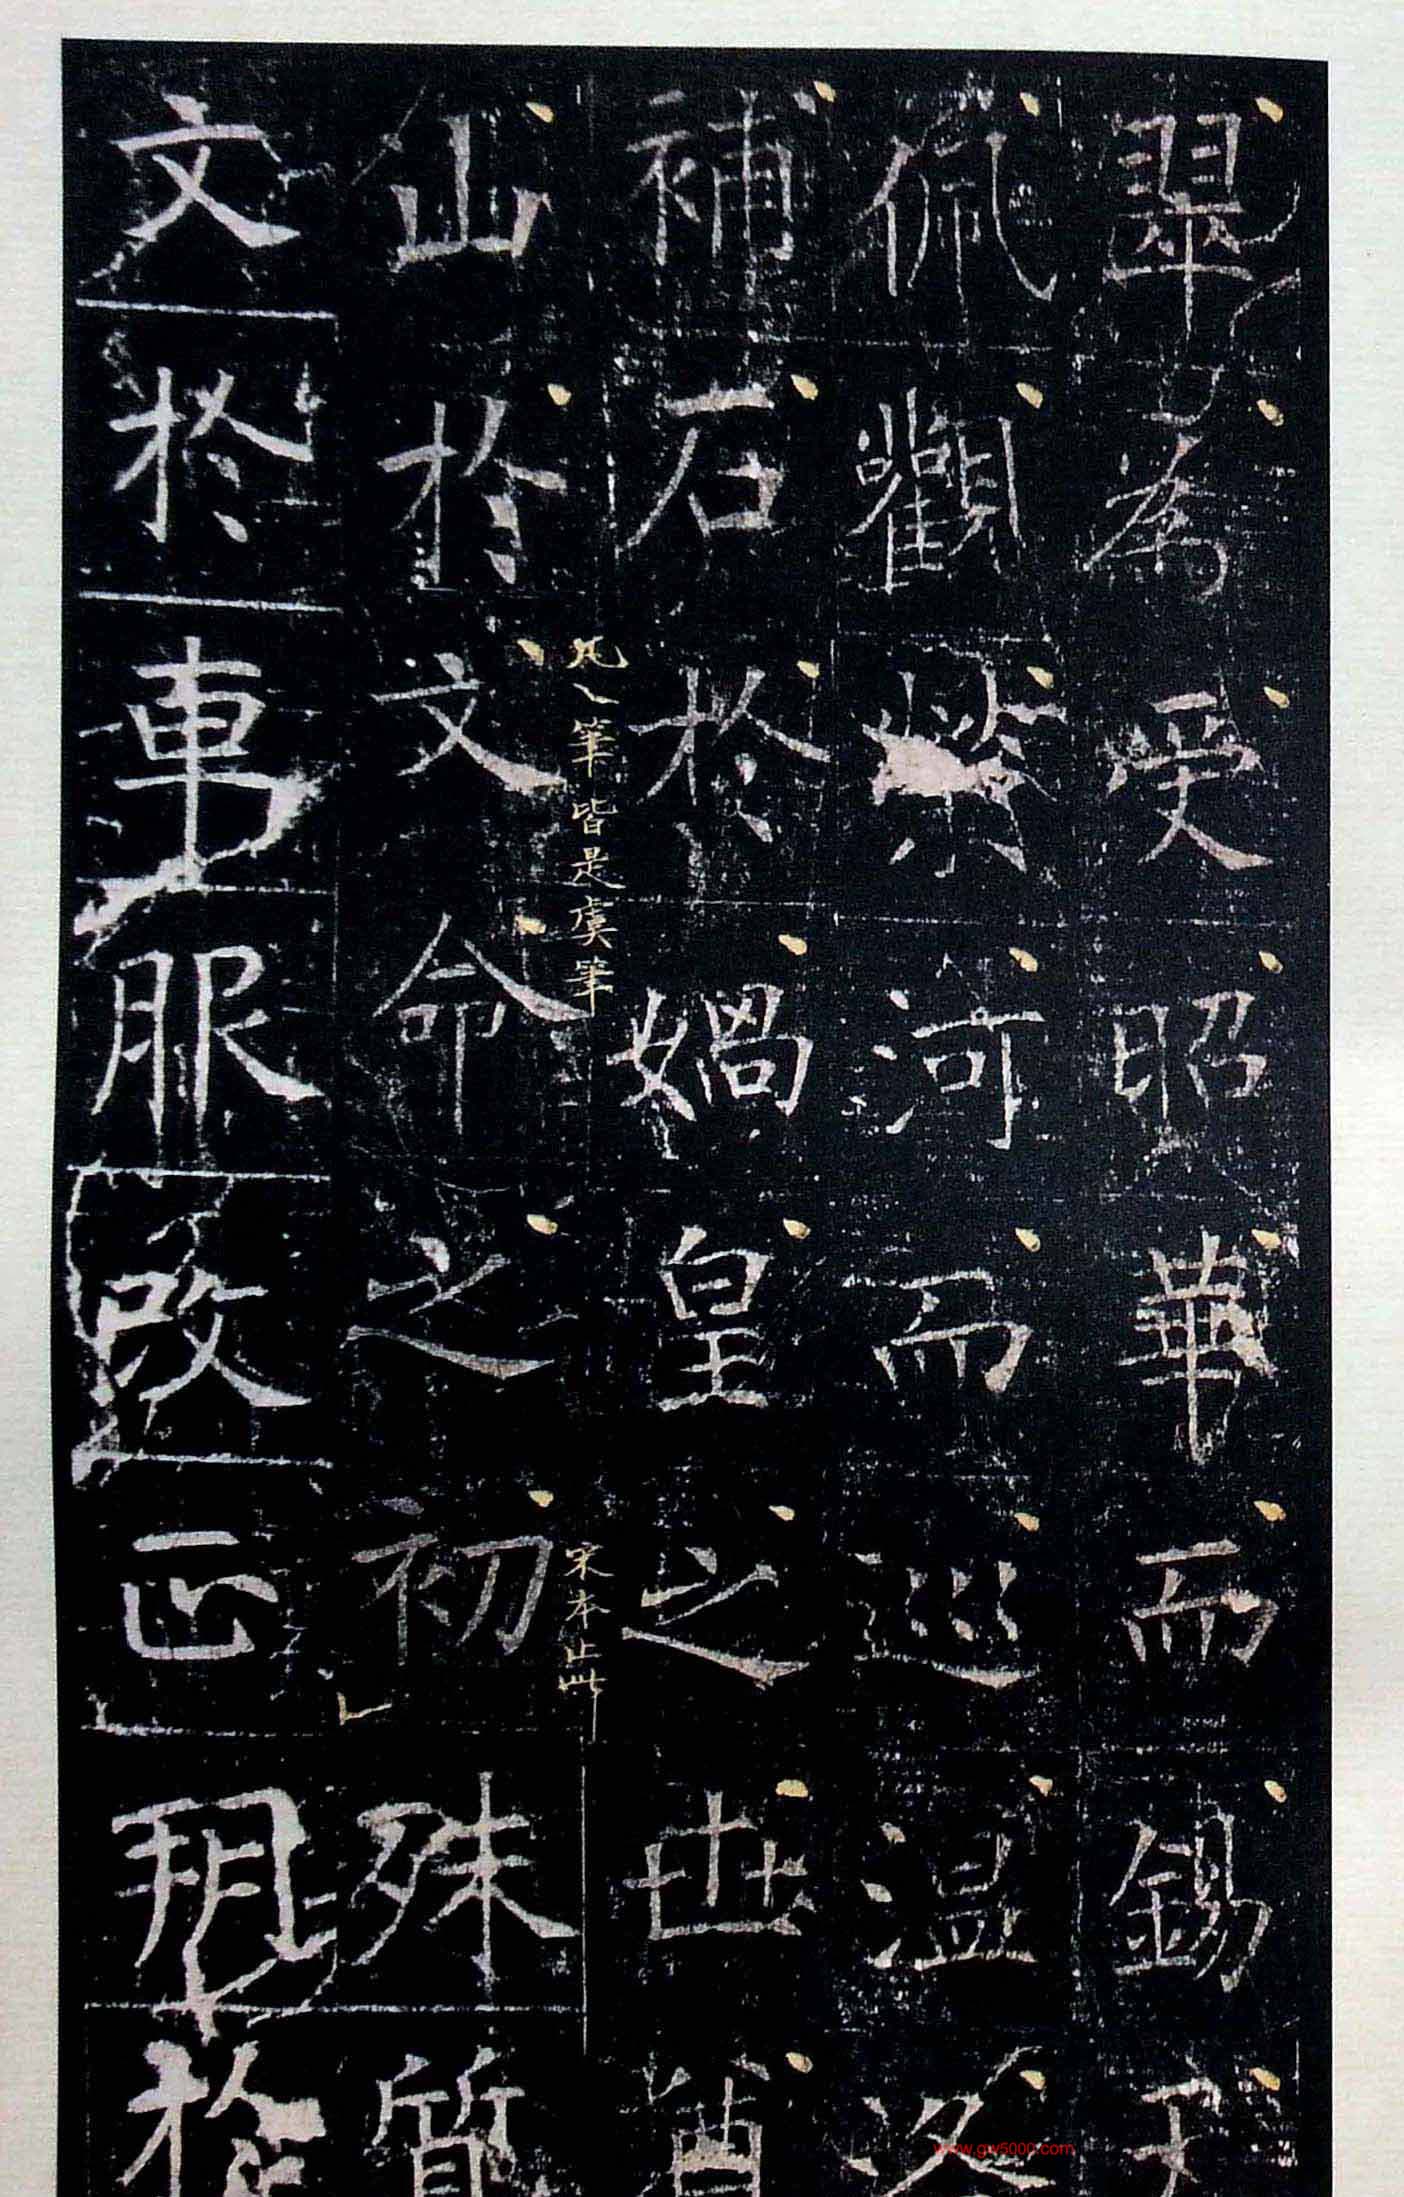 翠為受昭華而錫
佩觀榮河而巡溫洛
補石於媧皇之世
凡丶筆皆是虞筆
宋本止此
山於文命之初殊質
文於車服改正朔於
www.gw5000.com